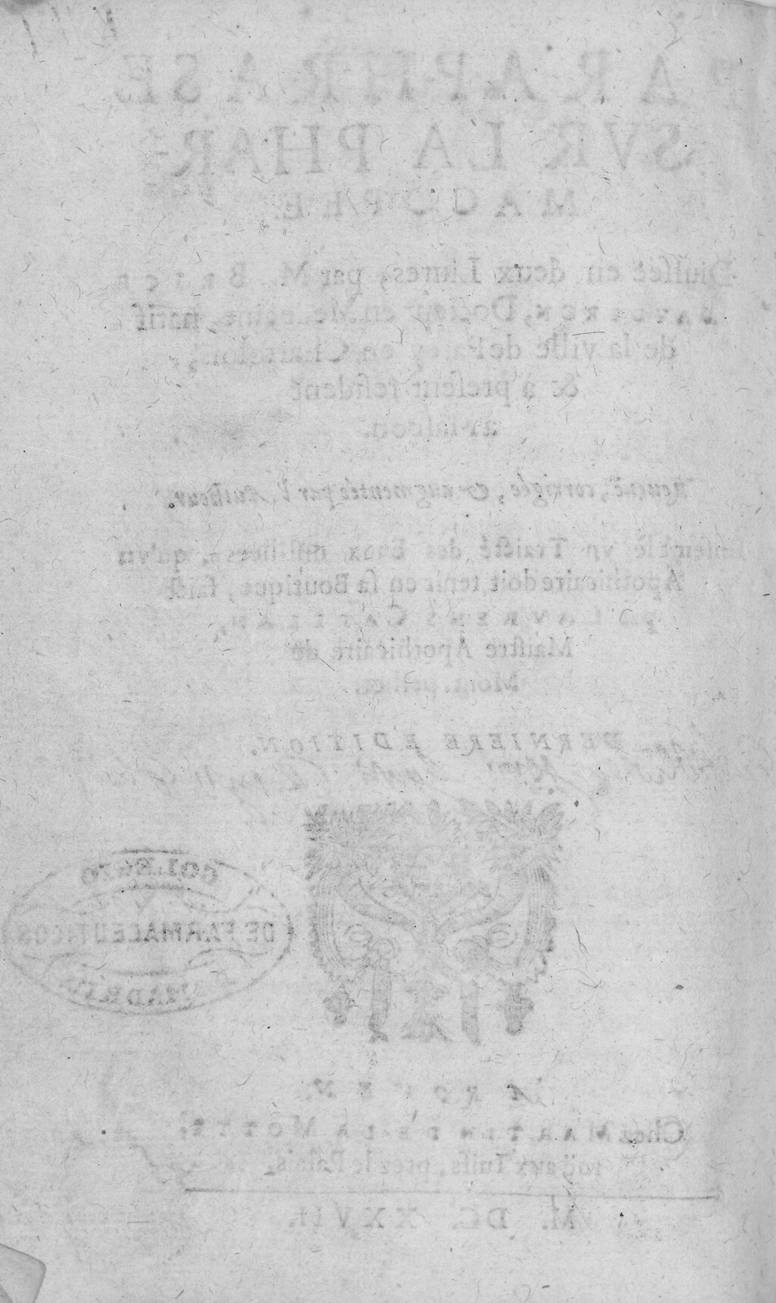 PARAPHRASE
SVR LA PHAR-
MACOPEE.
Diuisée en deux Liures, par M. BRICE
BAVDERON, Docteur en Medecine, natif
de la ville de Parey en Charrolois,
& à present resident
à Mascon.
Reueuë, corrigée, & augmentée par l'Autheur.
Ensemble vn Traicté des Eaux distillees, qu'vn
Apothicaire doit tenir en sa Boutique, faict
LAVRENS CATELAN,
Maistre Apothicaire de
Montpellier.
DERNIERE EDITION.
COLEGIO
DE FARMACEUTICOS
MADRID
A ROVEN,
Chez MARTIN DE LA MOTTE,
aux Iuifs, prez le Palais.
M. DC. XXVII.